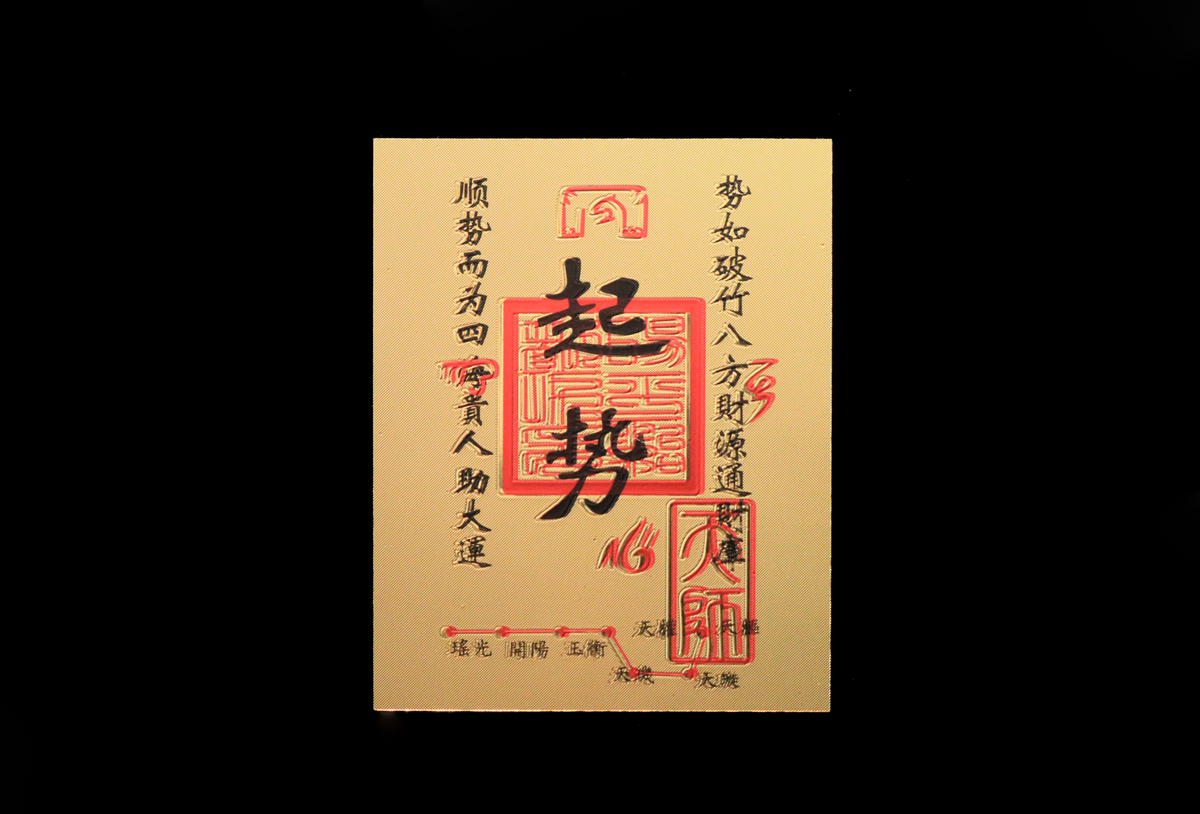 势如破竹八方財源通財庫
起势
顺势而为四海貴人助大運
天師
瑤光 開陽 玉衡 天權 天樞
天璇